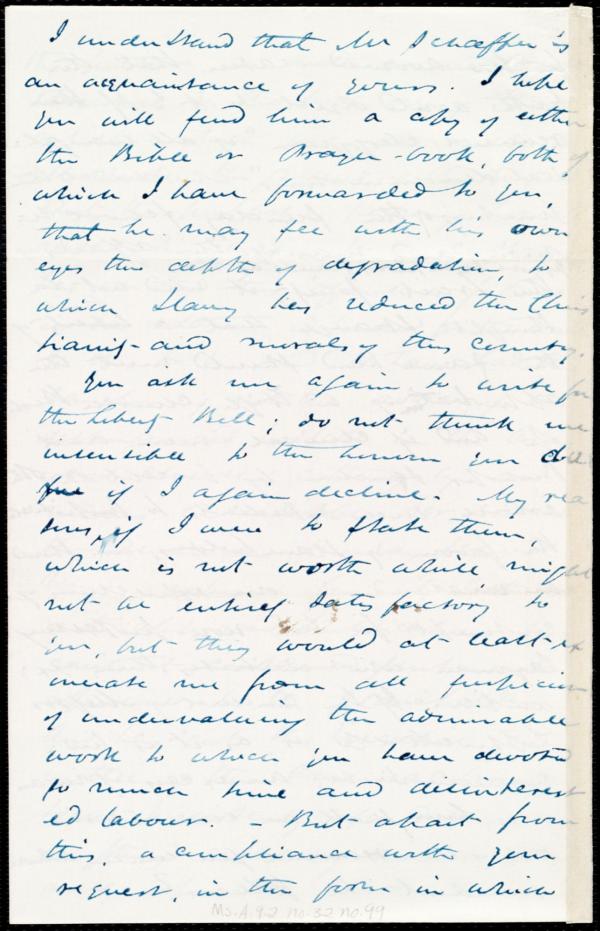 I understand that Mr Schaeffer is
an acquaintance of yours. I hope
you will send him a copy of either
the Bible or Prayer-book, both of
which I have forwarded to you,
that he may see with his own
eyes the depth of degradation, to
which Slavery has reduced the Chris
tianity and morals of this country.
You ask me again to write for
the Liberty Bell; do not think me
insensible to the honour you do
if I again decline. My rea
sons, if I were to state them,
which is not worth while might
not be entirely satisfactory to
you, but they would at least ex
onerate me from all suspicion
of undervaluing the admirable
work to which you have devoted
so much time and disinterest
ed labour. - But apart from
this, a compliance with your
request, in the form in which
Ms.A.9.2 no.32 no.99